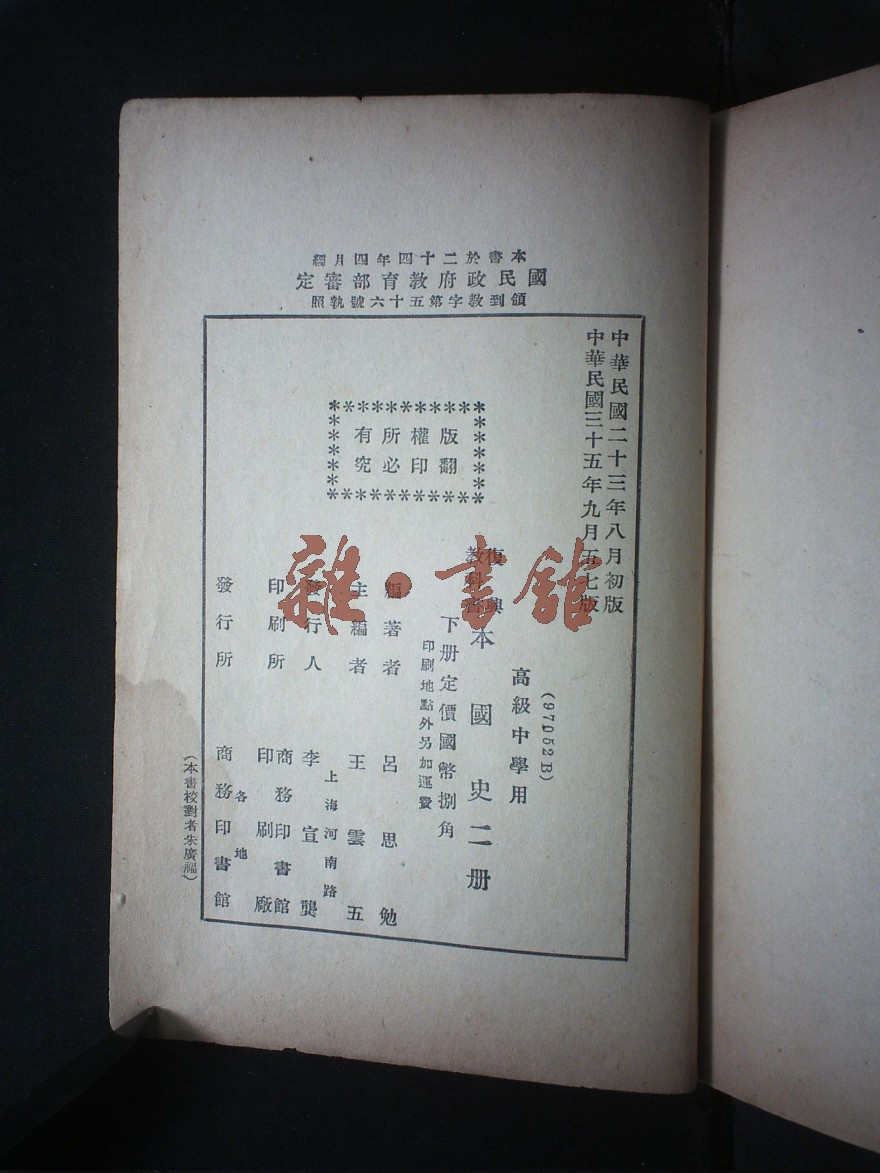 本書於二十四年四月經
國民政府教育部審定
領到教字第五十六號執照
中華民國二十三年八月初版
中華民國三十五年九月五七版
版權所有
翻印必究
(97052B)
高級中學用
復興教科書 本國史二册
下册定價國幣捌角
印刷地點外另加運費
編著者 呂思勉
主編者 王雲五
上海河南路
發行人 李宣龔
印刷所 商務印書館印刷廠
發行所 各地商務印書館
(本書校對者朱廣福)
雜·書館